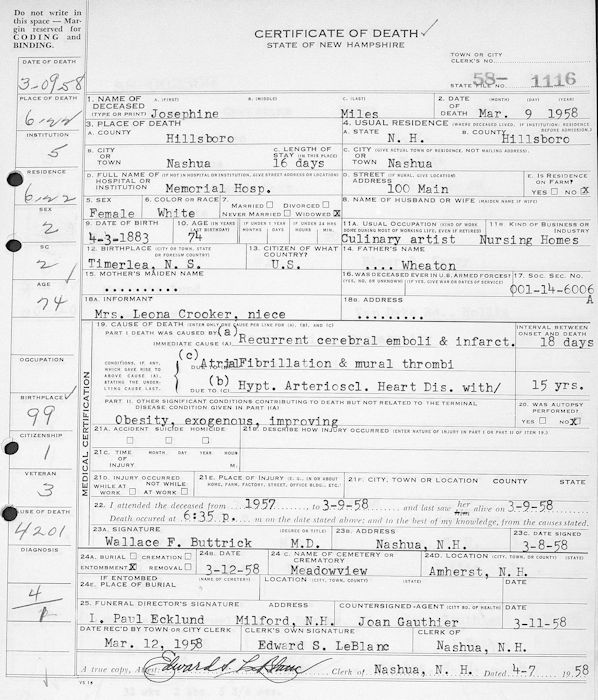 Do not write in
this space — Mar-
gin reserved for
CODING and
BINDING.
CERTIFICATE OF DEATH
STATE OF NEW HAMPSHIRE
TOWN OR CITY
CLERK'S NO.
STATE FILE NO. 58- 1116
DATE OF DEATH
3-09-58
PLACE OF DEATH
6-22
INSTITUTION
5
RESIDENCE
6-22
SEX
2
SC
2
AGE
74
OCCUPATION
BIRTHPLACE
99
CITIZENSHIP
1
VETERAN
3
CAUSE OF DEATH
4201
DIAGNOSIS
4
1
1. NAME OF DECEASED (TYPE OR PRINT) A. (FIRST) Josephine B. (MIDDLE) C. (LAST) Miles 2. DATE OF DEATH (MONTH) (DAY) (YEAR) Mar. 9 1958
3. PLACE OF DEATH 4. USUAL RESIDENCE (WHERE DECEASED LIVED. IF INSTITUTION: RESIDENCE BEFORE ADMISSION.)
A. COUNTY Hillsboro A. STATE N. H. B. COUNTY Hillsboro
B. CITY OR TOWN Nashua C. LENGTH OF STAY (IN THIS PLACE) 16 days C. CITY (GIVE ACTUAL TOWN OF RESIDENCE, NOT MAILING ADDRESS). OR TOWN Nashua
D. FULL NAME OF (IF NOT IN HOSPITAL OR INSTITUTION, GIVE STREET ADDRESS OR LOCATION) HOSPITAL OR INSTITUTION Memorial Hosp. D. STREET (IF RURAL, GIVE LOCATION) ADDRESS 100 Main E. IS RESIDENCE ON FARM? YES NO X
5. SEX Female 6. COLOR OR RACE White 7. MARRIED DIVORCED NEVER MARRIED WIDOWED X 8. NAME OF HUSBAND OR WIFE (MAIDEN NAME IF WIFE)
9. DATE OF BIRTH 4-3-1883 10. AGE (IN YEARS LAST BIRTHDAY) 74 IF UNDER 1 YEAR MONTHS DAYS IF UNDER 24 HRS. HOURS MIN. 11A. USUAL OCCUPATION (KIND OF WORK DONE DURING MOST OF WORKING LIFE, EVEN IF RETIRED) Culinary artist 11B KIND OF BUSINESS OR INDUSTRY Nursing Homes
12. BIRTHPLACE (CITY OR TOWN, STATE OR FOREIGN COUNTRY) Timerlea, N. S. 13. CITIZEN OF WHAT COUNTRY? U.S. 14. FATHER'S NAME .... Wheaton
15. MOTHER'S MAIDEN NAME .......... 16. WAS DECEASED EVER IN U.S. ARMED FORCES? (YES, NO, OR UNKNOWN) (IF YES, GIVE WAR OR DATES OF SERVICE) 17. SOC. SEC. NO. 001-14-6006 A
18A. INFORMANT Mrs. Leona Crooker, niece 18B. ADDRESS
MEDICAL CERTIFICATION
19. CAUSE OF DEATH (ENTER ONLY ONE CAUSE PER LINE FOR (A), (B), AND (C) INTERVAL BETWEEN ONSET AND DEATH
PART I DEATH WAS CAUSED BY: (a)
IMMEDIATE CAUSE (A) Recurrent cerebral emboli & infarct. 18 days
CONDITIONS, IF ANY, WHICH GAVE RISE TO ABOVE CAUSE (A), STATING THE UNDERLYING CAUSE LAST.
(c) Atrial Fibrillation & mural thrombi
DUE TO (C) (b) Hypt. Arterioscl. Heart Dis. with/ 15 yrs.
PART II. OTHER SIGNIFICANT CONDITIONS CONTRIBUTING TO DEATH BUT NOT RELATED TO THE TERMINAL DISEASE CONDITION GIVEN IN PART I(A) 20. WAS AUTOPSY PERFORMED?
Obesity, exogenous, improving YES NO X
21A. ACCIDENT SUICIDE HOMICIDE 21B. DESCRIBE HOW INJURY OCCURRED (ENTER NATURE OF INJURY IN PART I OR PART II OF ITEM 19.)
21C. TIME OF INJURY MONTH, DAY, YEAR HOUR M.
21D. INJURY OCCURRED WHILE AT WORK NOT WHILE AT WORK 21E. PLACE OF INJURY (E. G., IN OR ABOUT HOME, FARM, FACTORY, STREET, OFFICE BLDG., ETC.) 21F. CITY, TOWN, OR LOCATION COUNTY STATE
22. I attended the deceased from 1957 to 3-9-58 and last saw her him alive on 3-9-58
Death occurred at 6:35 p. m on the date stated above; and to the best of my knowledge, from the causes stated.
23A. SIGNATURE Wallace F. Buttrick (DEGREE OR TITLE) M.D. 23B. ADDRESS Nashua, N.H. 23C. DATE SIGNED 3-8-58
24A. BURIAL CREMATION ENTOMBMENT X REMOVAL 24B. DATE 3-12-58 24C. NAME OF CEMETERY OR CREMATORY Meadowview 24D. LOCATION (CITY, TOWN, OR COUNTY) (STATE) Amherst, N. H.
IF ENTOMBED (NAME OF CEMETERY) LOCATION (CITY, TOWN, COUNTY) (STATE) DATE
24E. PLACE OF BURIAL
25. FUNERAL DIRECTOR'S SIGNATURE ADDRESS COUNTERSIGNED-AGENT (CITY BD. OF HEALTH) DATE
I. Paul Ecklund Milford, N.H. Joan Gauthier 3-11-58
DATE REC'D BY TOWN OR CITY CLERK CLERK'S OWN SIGNATURE CLERK OF
Mar. 12, 1958 Edward S. LeBlanc Nashua, N.H.
A true copy, Attest: Edward S. LeBlanc Clerk of Nashua, N. H. Dated 4-7 1958
VS 14